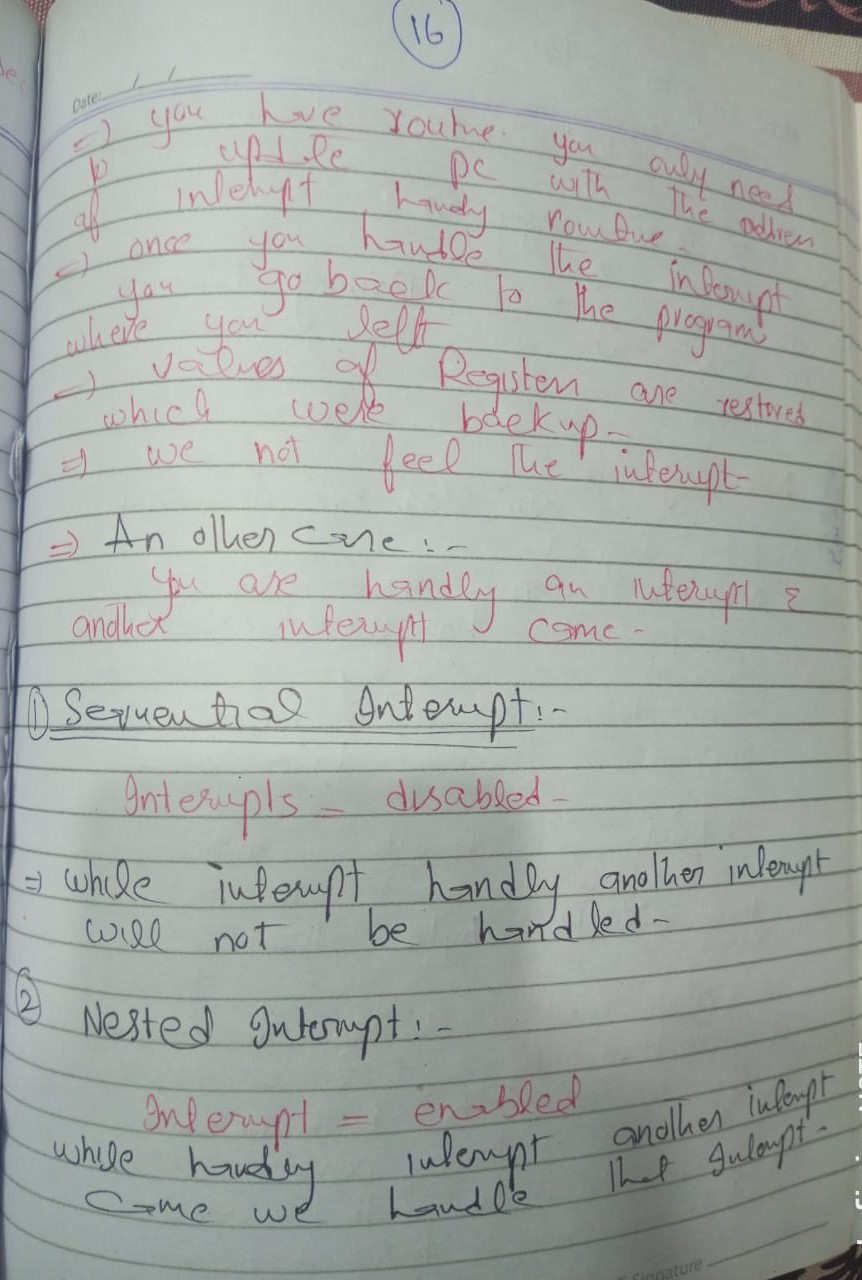 16
Date: / /
=) you hve routne. you only need
to updte pc with the address
of interupt handy routine -
=) once you handle the interupt
you go back to the program
where you left
=) values of Registers are restored
which were backup -
=) we not feel the interupt -
=) An other case : -
You are handly an interupt &
another interupt come -
① Sequential Interupt : -
Interupts = disabled -
=) while interupt handly another interupt
will not be handled -
② Nested Interupt : -
Interupt = enabled
while handly interupt another interupt
come we handle that Interupt -
Signature